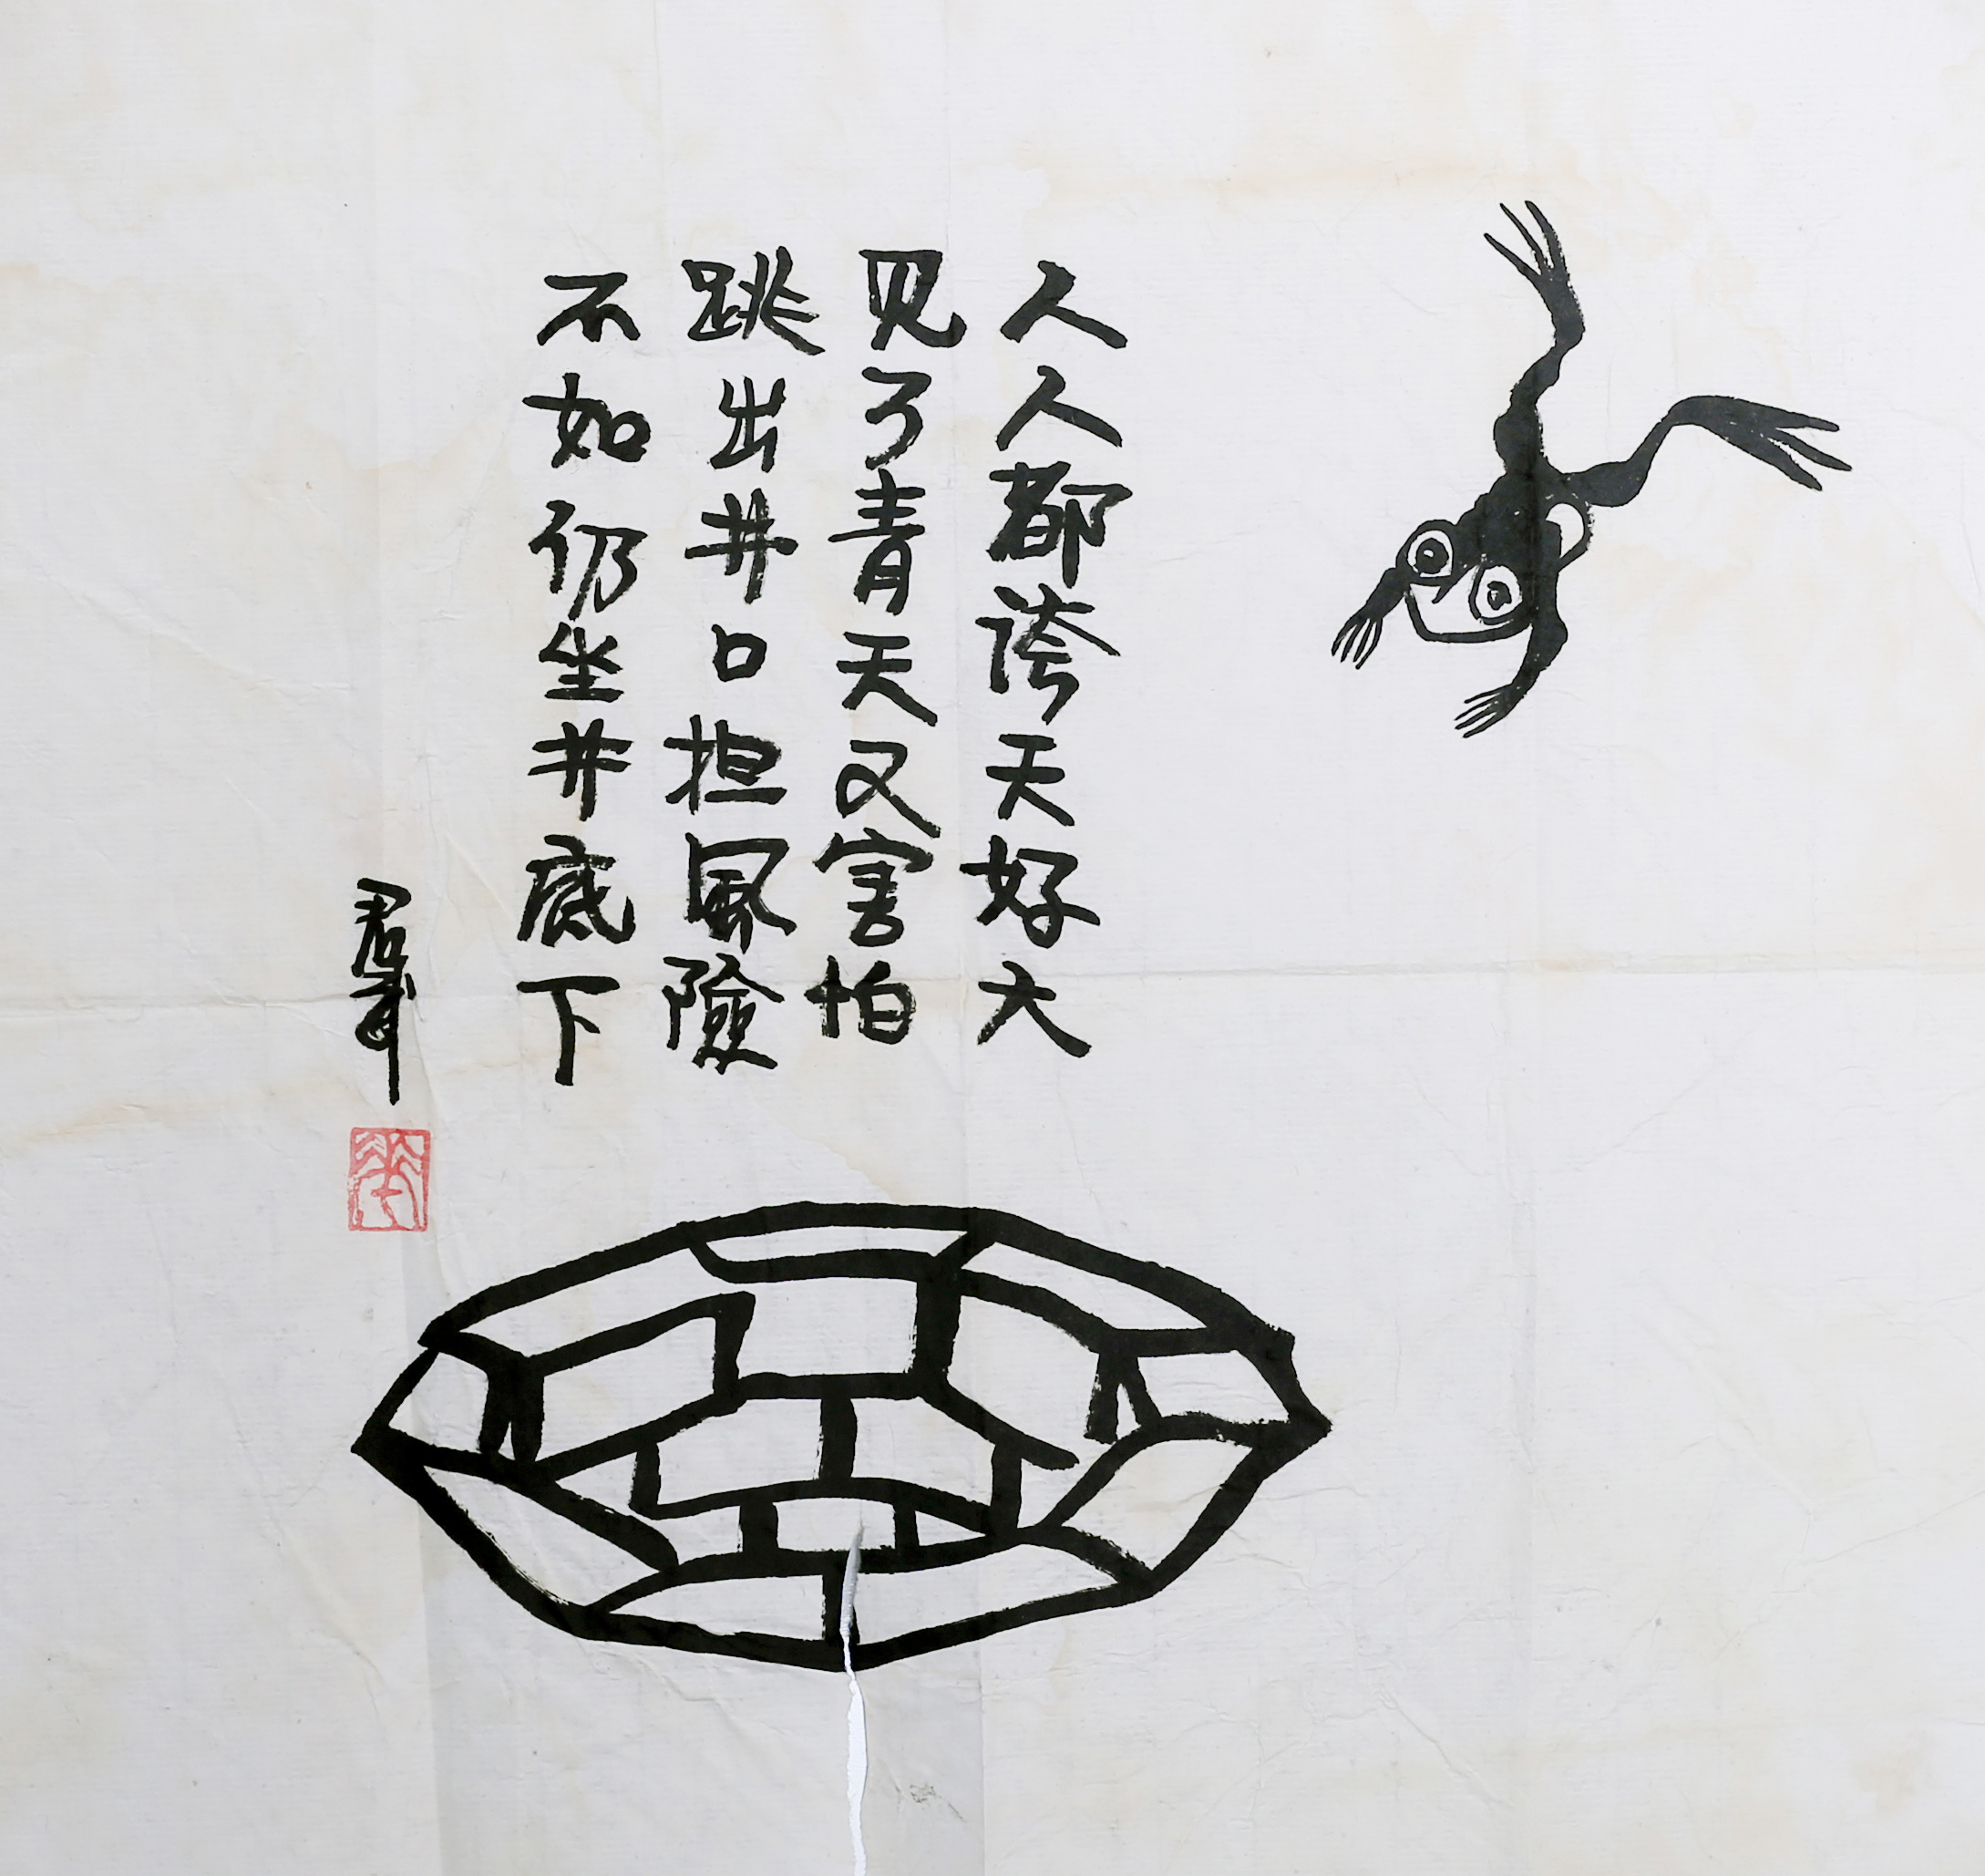 人人都誇天好大
见了青天又害怕
跳出井口担風險
不如仍坐井底下
君武
華